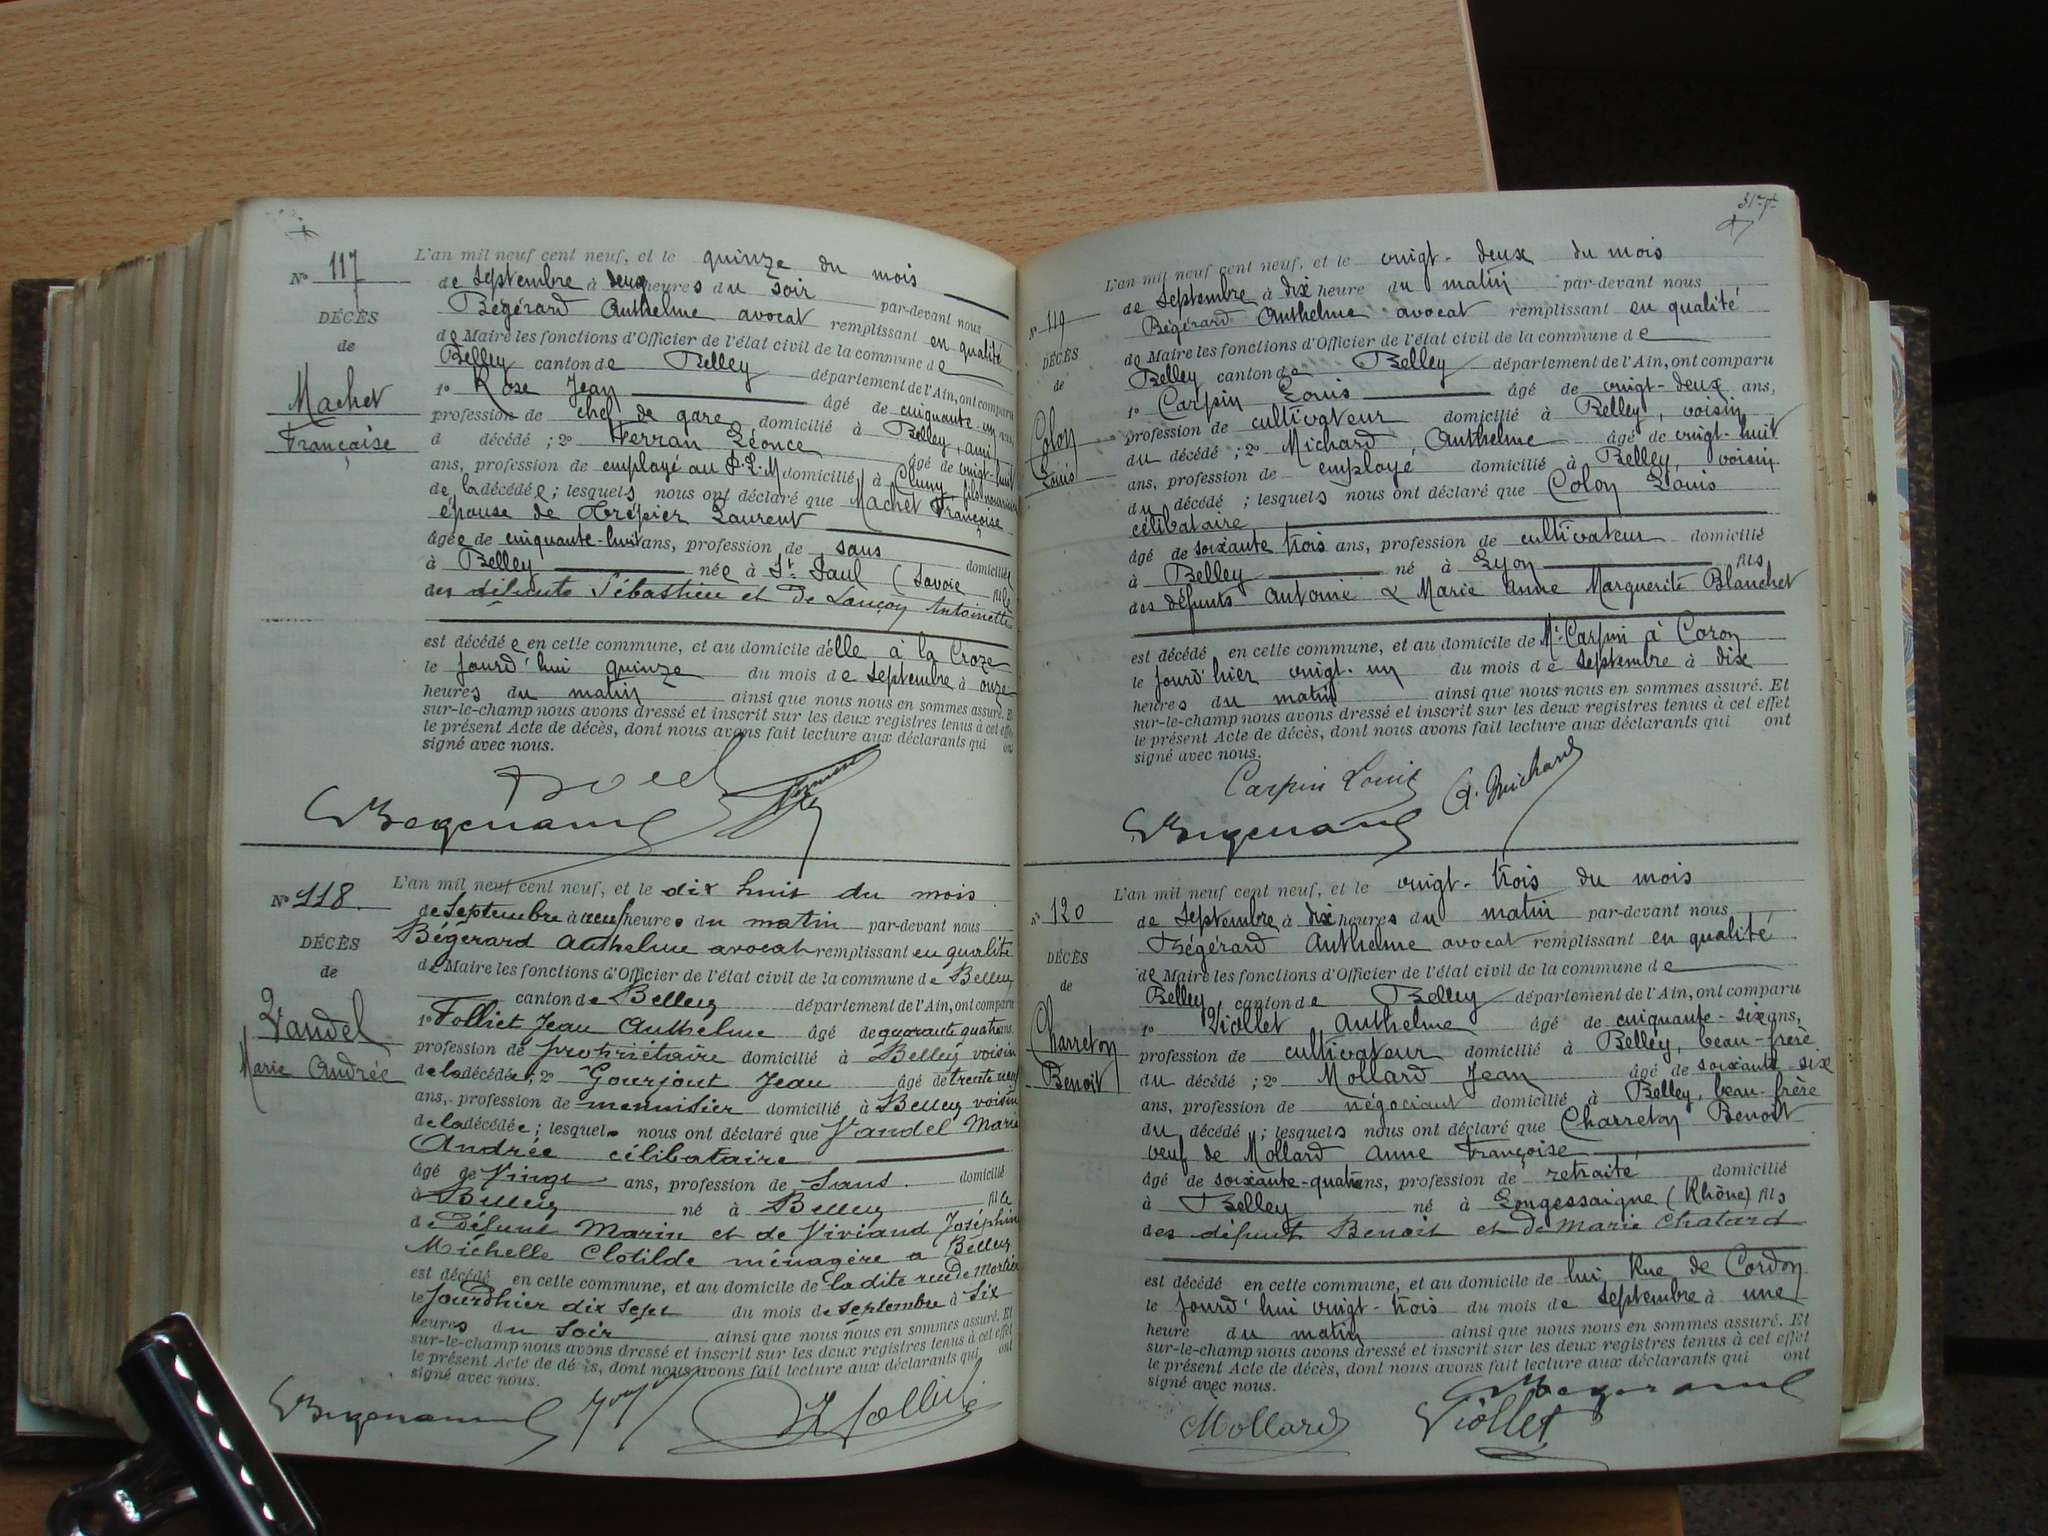 Nº 117
DÉCÈS
de
Machet
Françoise
L'an mil neuf cent neuf, et le quinze du mois
de Septembre à deux heures du soir par-devant nous
Bégérard Anthelme avocat remplissant en qualité
de Maire les fonctions d'Officier de l'état civil de la commune de
Belley canton de Belley département de l'Ain, ont comparu
1º Rose Jean âgé de cinquante-un ans,
profession de chef de gare domicilié à Belley, ami
d décédé ; 2º Ferran Léonce âgé de vingt-huit
ans, profession de employé au P.L.M domicilié à Cluny, fils nourricier
de la décédée ; lesquels nous ont déclaré que Machet Françoise
épouse de Trépier Laurent
âgée de cinquante-huit ans, profession de sans domicilié
à Belley née à St. Paul (Savoie fille
des défunts Sébastien et de Lançon Antoinette
est décédée en cette commune, et au domicile d'elle à la Croze
le jourd'hui quinze du mois de Septembre à onze
heures du matin ainsi que nous nous en sommes assuré. Et
sur-le-champ nous avons dressé et inscrit sur les deux registres tenus à cet effet
le présent Acte de décès, dont nous avons fait lecture aux déclarants qui ont
signé avec nous.
Nº 118
DÉCÈS
de
Vandel
Marie Andrée
L'an mil neuf cent neuf, et le dix huit du mois
de Septembre à neuf heures du matin par-devant nous
Bégérard Anthelme avocat remplissant en qualité
de Maire les fonctions d'Officier de l'état civil de la commune de Belley
canton de Belley département de l'Ain, ont comparu
1º Folliet Jean Anthelme âgé de quarante quatre ans,
profession de propriétaire domicilié à Belley voisin
de la décédée ; 2º Gourjout Jean âgé de trente neuf
ans, profession de menuisier domicilié à Belley voisin
de la décédée ; lesquels nous ont déclaré que Vandel Marie
Andrée célibataire
âgé de Vingt ans, profession de Sans domicilié
à Belley né à Belley fille
de défunt Marin et de Viviand Joséphine
Michelle Clotilde ménagère a Belley
est décédé en cette commune, et au domicile de la dite rue de Morlier
le jourdhier dix sept du mois de Septembre à Six
heures du Soir ainsi que nous nous en sommes assuré. Et
sur-le-champ nous avons dressé et inscrit sur les deux registres tenus à cet effet
le présent Acte de décès, dont nous avons fait lecture aux déclarants qui ont
signé avec nous.
Nº 119
DÉCÈS
de
Colon
Louis
L'an mil neuf cent neuf, et le vingt-deux du mois
de Septembre à dix heure du matin par-devant nous
Bégérard Anthelme avocat remplissant en qualité
de Maire les fonctions d'Officier de l'état civil de la commune de
Belley canton de Belley département de l'Ain, ont comparu
1º Carpin Louis âgé de vingt-deux ans,
profession de cultivateur domicilié à Belley, voisin
du décédé ; 2º Michard, Anthelme âgé de vingt-huit
ans, profession de employé domicilié à Belley, voisin
du décédé ; lesquels nous ont déclaré que Colon Louis
célibataire
âgé de soixante trois ans, profession de cultivateur domicilié
à Belley né à Lyon fils
des défunts Antoine & Marie Anne Marguerite Blanchet
est décédé en cette commune, et au domicile de Mr. Carpin à Coron
le jourd'hier vingt-un du mois de Septembre à dix
heures du matin ainsi que nous nous en sommes assuré. Et
sur-le-champ nous avons dressé et inscrit sur les deux registres tenus à cet effet
le présent Acte de décès, dont nous avons fait lecture aux déclarants qui ont
signé avec nous.
Carpin Louis A. Michard
Nº 120
DÉCÈS
de
Charreton
Benoit
L'an mil neuf cent neuf, et le vingt-trois du mois
de Septembre à dix heures du matin par-devant nous
Bégérard Anthelme avocat remplissant en qualité
de Maire les fonctions d'Officier de l'état civil de la commune de
Belley canton de Belley département de l'Ain, ont comparu
1º Viollet Anthelme âgé de cinquante-six ans,
profession de cultivateur domicilié à Belley, beau-frère
du décédé ; 2º Mollard Jean âgé de soixante-six
ans, profession de négociant domicilié à Belley, beau-frère
du décédé ; lesquels nous ont déclaré que Charreton Benoit
veuf de Mollard Anne Françoise
âgé de soixante-quatre ans, profession de retraité domicilié
à Belley né à Longessaigne (Rhône) fils
des défunt Benoit et de Marie Chatard
est décédé en cette commune, et au domicile de lui, Rue de Cordon
le jourd'hui vingt-trois du mois de Septembre à une
heure du matin ainsi que nous nous en sommes assuré. Et
sur-le-champ nous avons dressé et inscrit sur les deux registres tenus à cet effet
le présent Acte de décès, dont nous avons fait lecture aux déclarants qui ont
signé avec nous.
Mollard Viollet